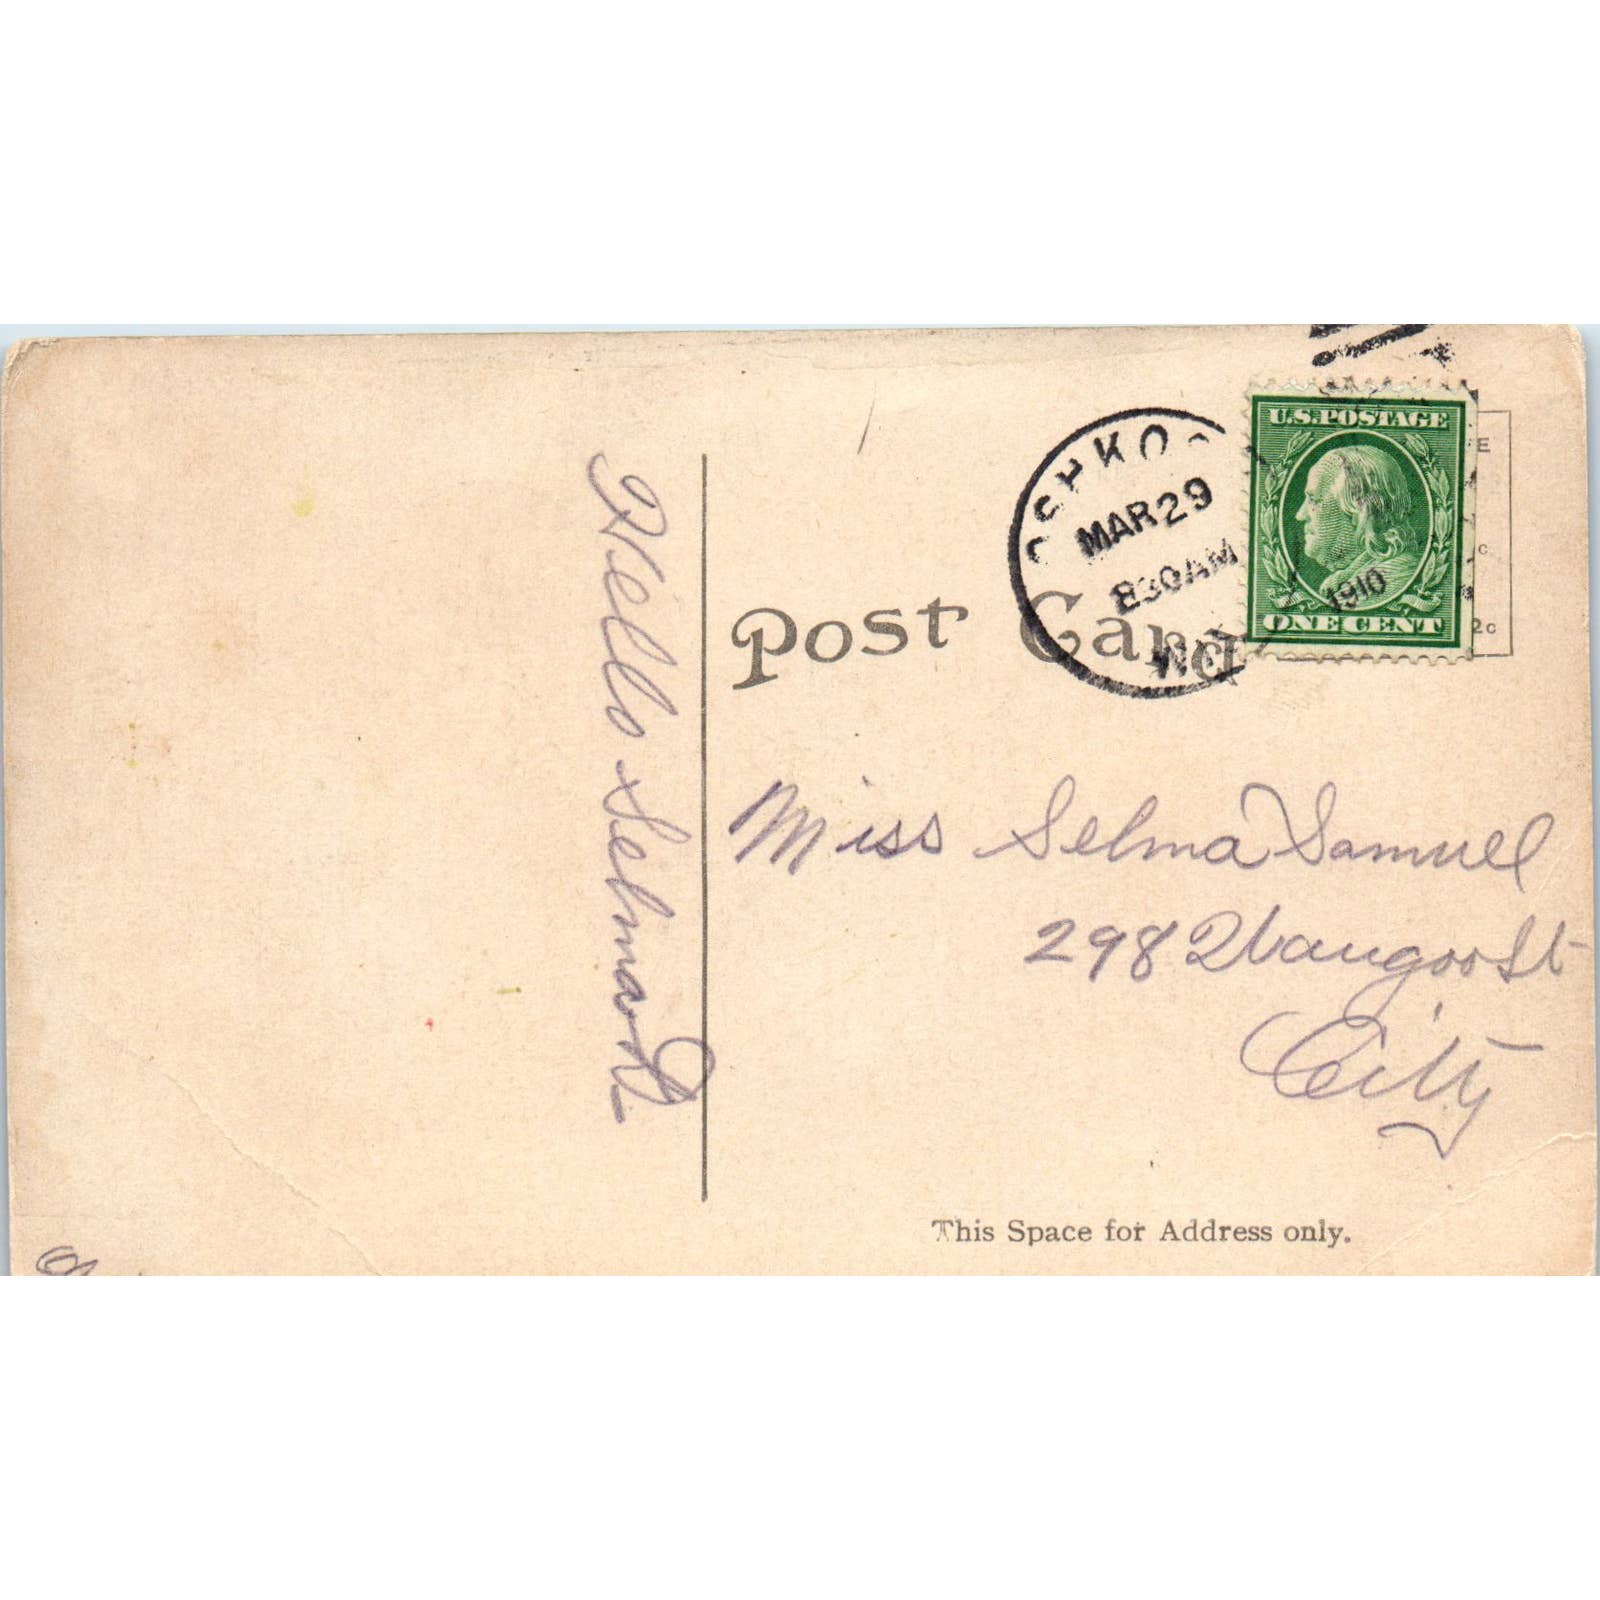 OSHKOS
MAR 29
830 AM
WIS.
1910
U.S. POSTAGE
ONE CENT
E
c
2c
Post Card
Hello Selma
Miss Selma Samuel
298 Waugoo St
City
This Space for Address only.